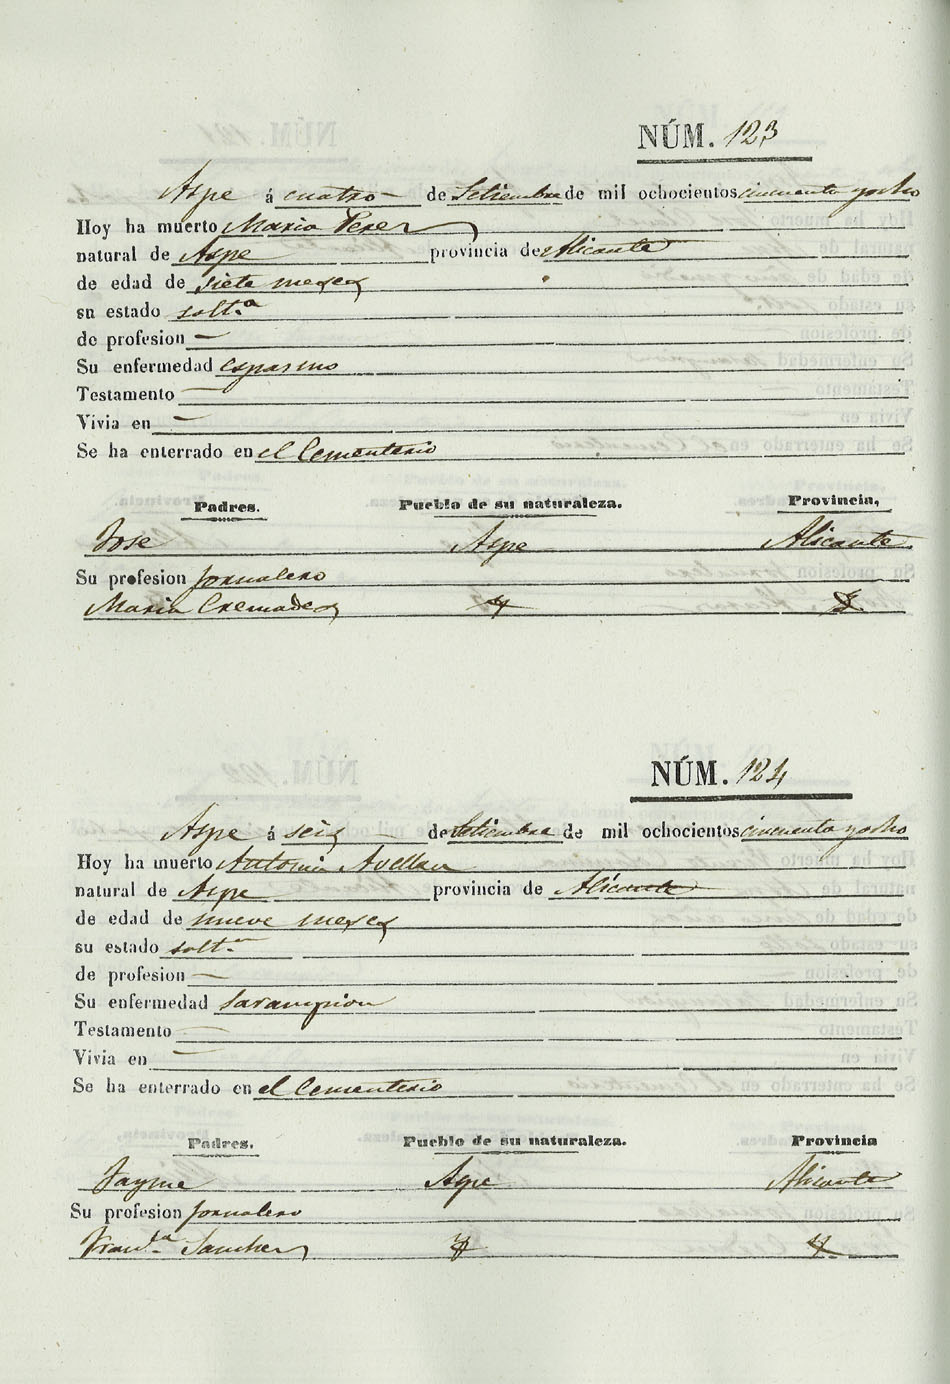 NÚM. 123
Aspe á cuatro de Setiembre de mil ochocientos cincuenta y ocho
Hoy ha muerto Maria Perez
natural de Aspe provincia de Alicante
de edad de siete meses
su estado solt.a
de profesion —
Su enfermedad espasmo
Testamento —
Vivia en —
Se ha enterrado en el Cementerio
Padres. Pueblo de su naturaleza. Provincia,
Jose Aspe Alicante
Su profesion jornalero
Maria Cremades
NÚM. 124
Aspe á seis de Setiembre de mil ochocientos cincuenta y ocho
Hoy ha muerto Antonia Avellan
natural de Aspe provincia de Alicante
de edad de nueve meses
su estado solt.a
de profesion —
Su enfermedad Sarampion
Testamento —
Vivia en —
Se ha enterrado en el Cementerio
Padres. Pueblo de su naturaleza. Provincia
Jayme Aspe Alicante
Su profesion jornalero
Fran.ca Sanchez